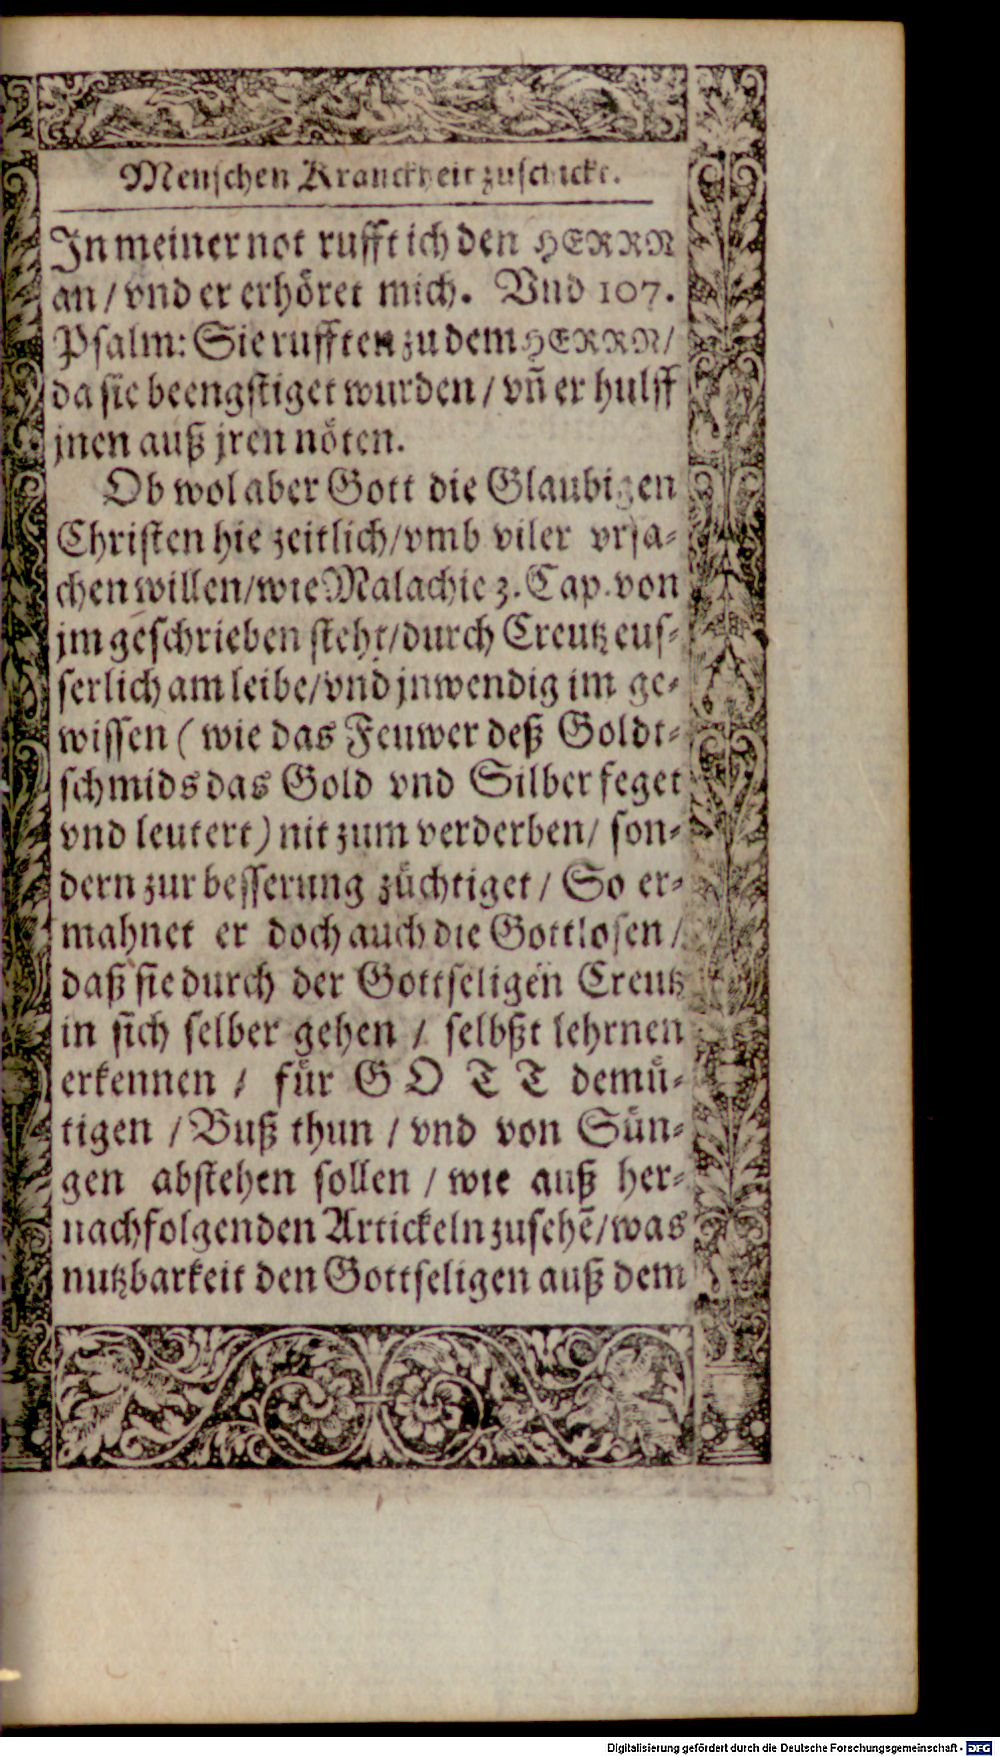 Menschen Kranckheit zuschickt.
In meiner not rufft ich den HERRN
an / vnd er erhöret mich. Vnd 107.
Psalm: Sie rufften zu dem HERRN /
da sie beengstiget wurden / vñ er hulff
jnen auß jren nöten.
Ob wol aber Gott die Glaubigen
Christen hie zeitlich / vmb viler vrsa-
chen willen / wie Malachie 3. Cap. von
jm geschrieben steht / durch Creutz eus-
serlich am leibe / vnd jnwendig im ge-
wissen ( wie das Feuwer deß Goldt-
schmids das Gold vnd Silber feget
vnd leutert ) nit zum verderben / son-
dern zur besserung züchtiget / So er-
mahnet er doch auch die Gottlosen /
daß sie durch der Gottseligen Creutz
in sich selber gehen / selbßt lehrnen
erkennen / für GOTT demü-
tigen / Buß thun / vnd von Sün-
gen abstehen sollen / wie auß her-
nachfolgenden Artickeln zusehē / was
nutzbarkeit den Gottseligen auß dem
Digitalisierung gefördert durch die Deutsche Forschungsgemeinschaft - DFG